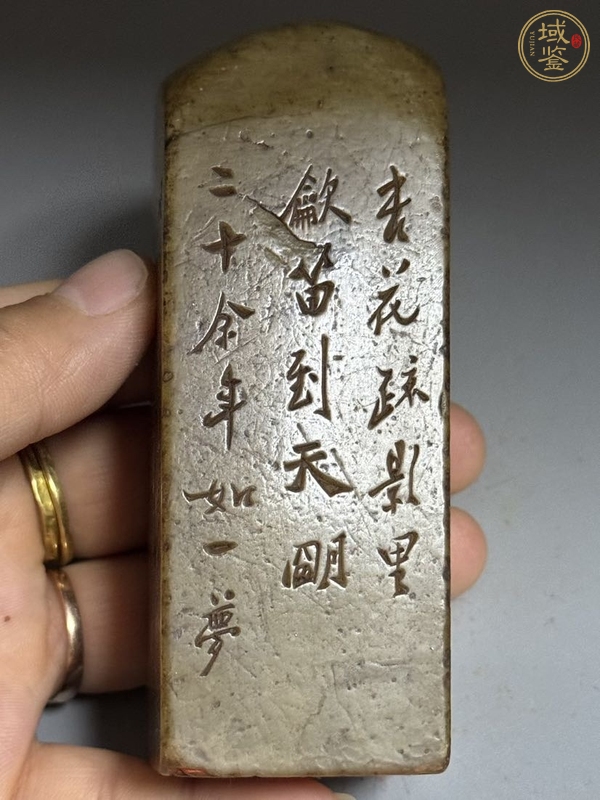 杏花疎影里
龡笛到天朙
二十余年如一夢
域鉴
YUJIAN